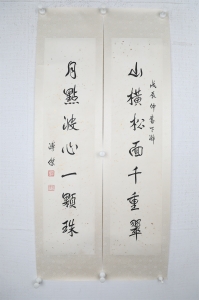 山橫松面千重翠
戊辰仲春下澣
月點波心一顆珠
溥傑